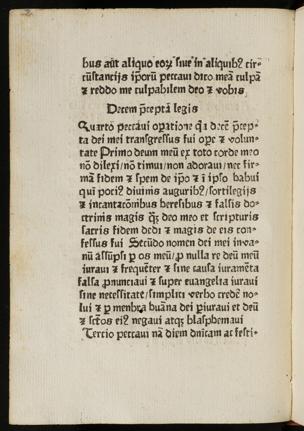 bus aūt aliquo eoꝝ siue in aliquibꝫ cir⸗
cūstantijs ip̄oꝝū peccaui dico meā culpā
⁊ reddo me culpabilem deo ⁊ vobis
Decem p̄cepta legis
Quarto peccaui op̄atione q̄a decē p̄cep⸗
ta dei mei transgressus fui ope ⁊ volun⸗
tate Primo deum meū ex toto corde meo
nō dilexi / nō timui non adoraui / nec fir⸗
mā fidem ⁊ spem de ip̄o ⁊ ī ipso habui
qui poti⁹ diuinis auguribꝫ / sortilegijs
⁊ incantacōnibus heresibus ⁊ falsis do⸗
ctrinis magis qꝫ deo meo et scripturis
sacris fidem dedi ⁊ magis de eis con⸗
fessus fui Secūdo nomen dei mei in va⸗
nū assūpsi ꝑ os meū / ꝓ nulla re deū meū
iuraui ⁊ frequēter ⁊ sine causa iuramēta
falsa ꝓnunciaui ⁊ super euangelia iuraui
sine necessitate / simplici verbo credē no⸗
lui ⁊ ꝑ menbra huāna dei ꝑiuraui et deū
⁊ sctōs ei⁹ negaui atqꝫ blasphemaui
Tercio peccaui nā diem dn̄icam ac festi⸗